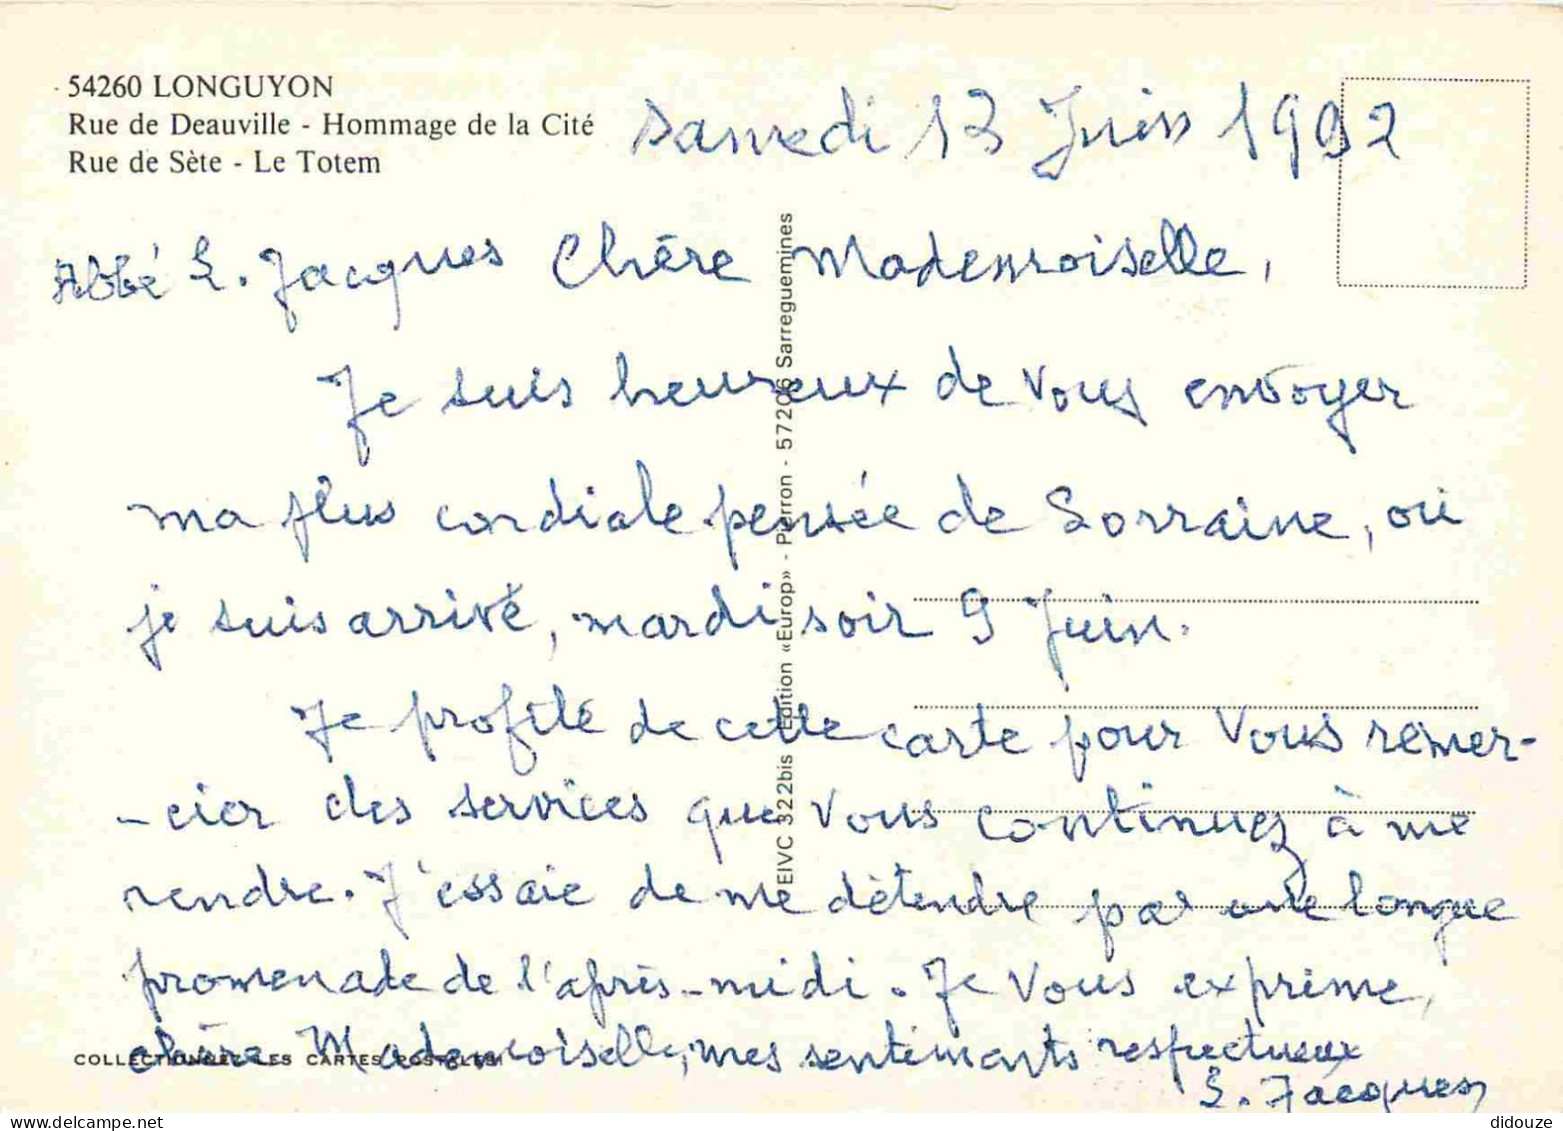 54260 LONGUYON
Rue de Deauville - Hommage de la Cité
Rue de Sète - Le Totem
Samedi 13 Juin 1992
Abbé L. Jacques Chère Mademoiselle,
Je suis heureux de vous envoyer
ma plus cordiale pensée de Lorraine, où
je suis arrivé, mardi soir 9 Juin.
Je profite de cette carte pour vous remer-
-cier des services que vous continuez à me
rendre. J'essaie de me détendre par une longue
promenade de l'après-midi. Je vous exprime,
chère Mademoiselle, mes sentiments respectueux
L. Jacques
COLLECTIONNEZ LES CARTES POSTALES
EIVC 322bis Edition «Europ» - Pierron - 57206 Sarreguemines
didouze